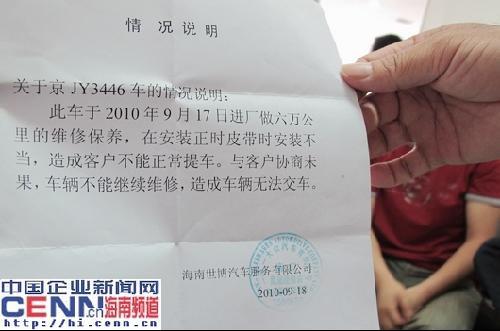 情况说明
关于京 JY3446 车的情况说明:
此车于 2010 年 9 月 17 日进厂做六万公
里的维修保养，在安装正时皮带时安装不
当，造成客户不能正常提车。与客户协商未
果，车辆不能继续维修，造成车辆无法交车。
海南世博汽车服务有限公司
2010-09-18
中国企业新闻网
CENN.cn海南频道
http://hi.cenn.com